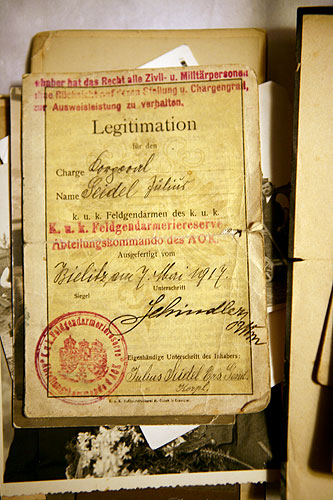 Inhaber hat das Recht alle Zivil- u. Militärpersonen
ohne Rücksicht auf deren Stellung u. Chargengrad,
zur Ausweisleistung zu verhalten.
Legitimation
für den
Charge Corporal
Name Seidel Julius
k. u. k. Feldgendarmen des k. u. k.
K. u. k. Feldgendarmeriereserve
Abteilungskommando des AOK
Ausgefertigt vom
Bielitz, am 7. Mai 1917.
Siegel Unterschrift
Schindler
Eigenhändige Unterschrift des Inhabers:
Julius Seidel